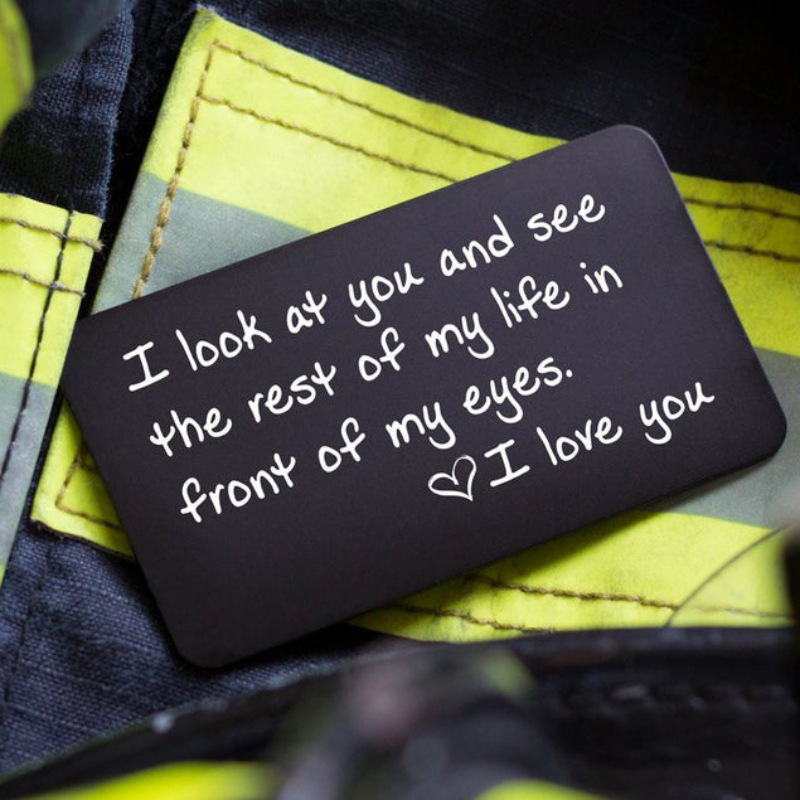 I look at you and see
the rest of my life in
front of my eyes.
♡ I love you